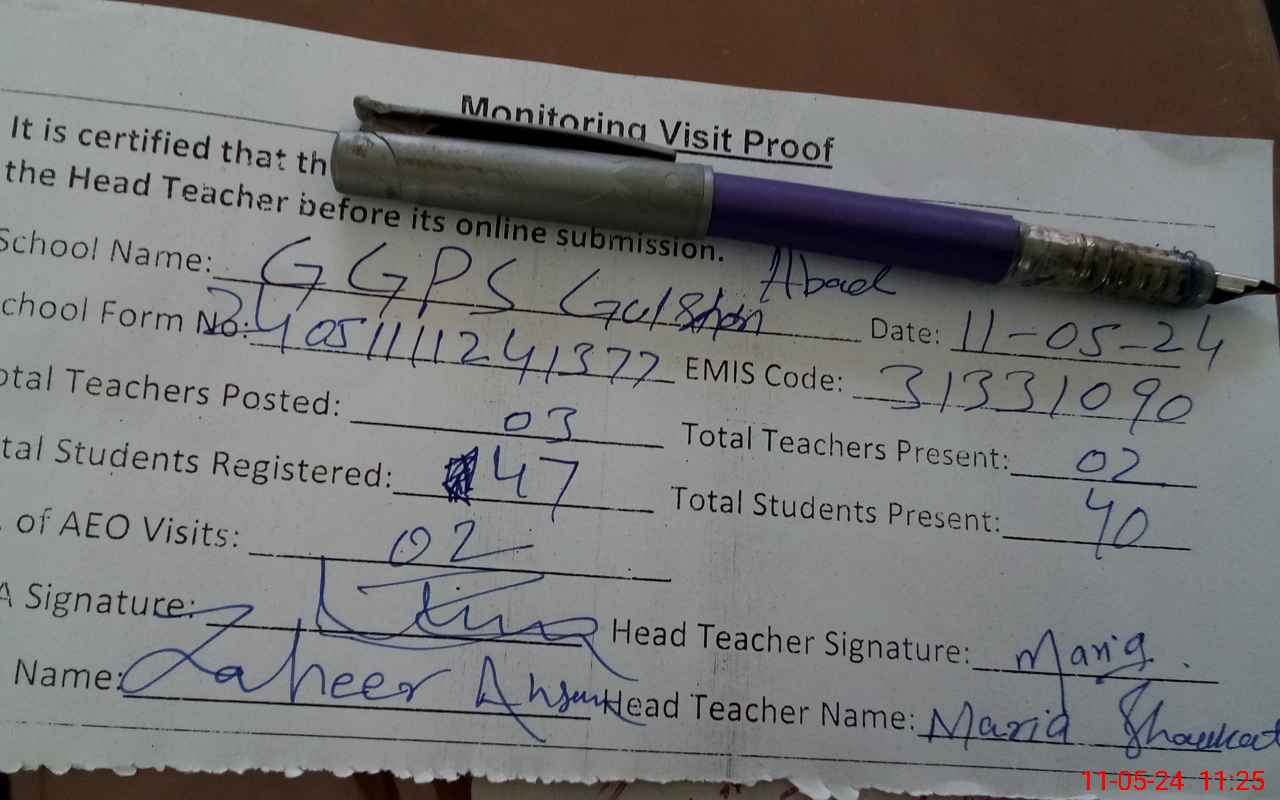 Monitoring Visit Proof
It is certified that th
the Head Teacher before its online submission.
School Name: GGPS Gulshan Abad Date: 11-05-24
chool Form No: 24051111241377 EMIS Code: 31331090
otal Teachers Posted: 03 Total Teachers Present: 02
tal Students Registered: 47 Total Students Present: 40
. of AEO Visits: 02
A Signature: Head Teacher Signature: Maria.
Name: Zaheer Ahsan Head Teacher Name: Maria Shaukat
11-05-24 11:25